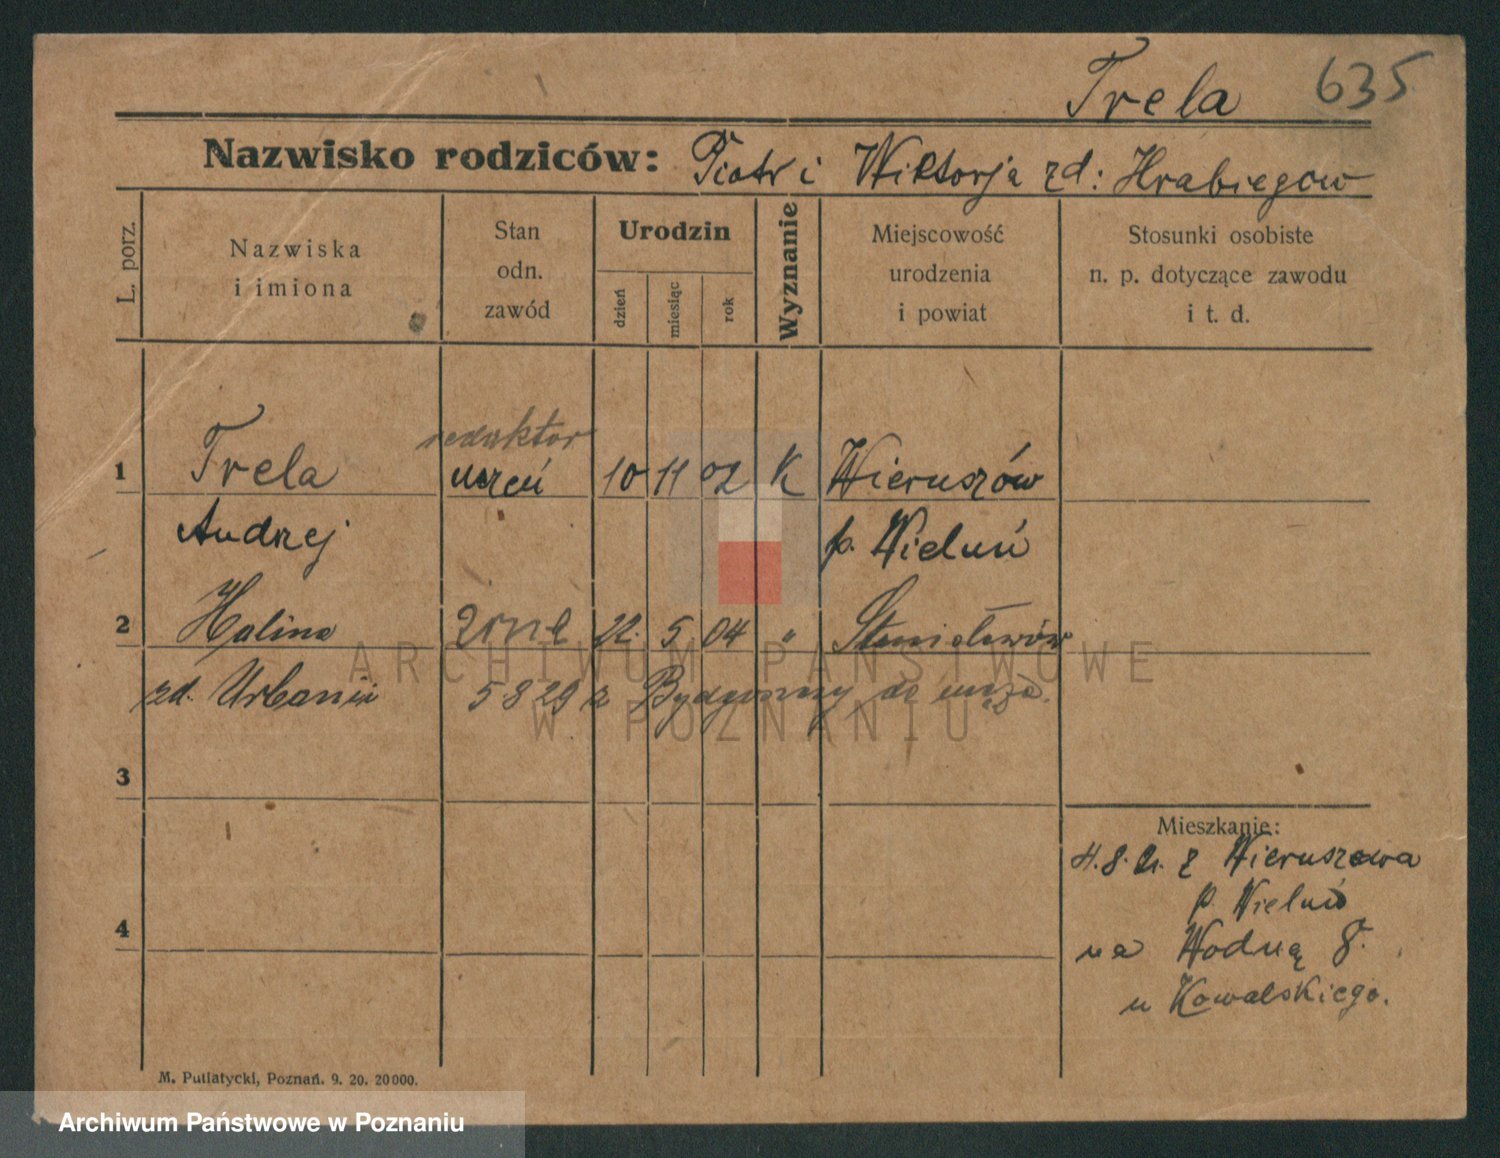 Trela 635
Nazwisko rodziców: Piotr i Wiktorja zd: Hrabiegow
L. porz.
Nazwiska
i imiona
Stan
odn.
zawód
Urodzin
dzień
miesiąc
rok
Wyznanie
Miejscowość
urodzenia
i powiat
Stosunki osobiste
n. p. dotyczące zawodu
i t. d.
redaktor
1 Trela uczeń 10 11 02 K Wieruszów
Andrzej p. Wieluń
2 Halina żona 22. 5 04 " Stanisławów
zd. Urbanik 5 8 29 z Bydgoszczy do męża.
ARCHIWUM PAŃSTWOWE
W POZNANIU
3
Mieszkanie:
z Wieruszowa
p. Wieluń
4
na Wodną 8.
u Kowalskiego.
M. Putiatycki, Poznań. 9. 20. 20000.
Archiwum Państwowe w Poznaniu